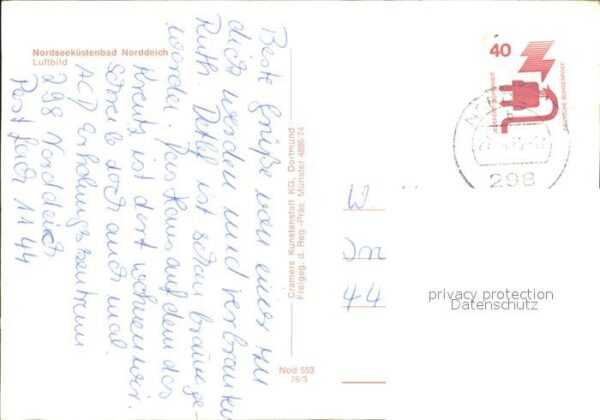 Nordseeküstenbad Norddeich
Luftbild
Beste Grüße von einer
dich werden und verbrannten
Ruth. Detlef ist schon braun ge-
worden. Das Haus auf dem das
Kreuz ist dort wohnen wir.
Schreib doch auch mal
ACJ Erholungszentrum
298 Norddeich
Postfach 1144
Cramers Kunstanstalt KG. Dortmund
Freigeg. d. Reg.-Präs. Münster 4886/74
Nod 553
76 3
40
DEUTSCHE BUNDESPOST
298
W
44
privacy protection
Datenschutz